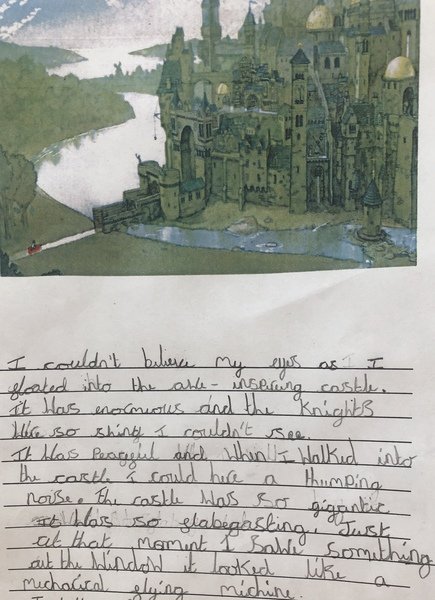 I couldn't believe my eyes as I I
floated into the awe-inspiring castle.
It was enormious and the Knights
were so shiny I couldn't see.
It was peacful and when I walked into
the castle I could here a thumping
noise. The castle was so gigantic
it was so flabegasting. Just
at that moment I sawe something
out the window it looked like a
mechanical flying michine.